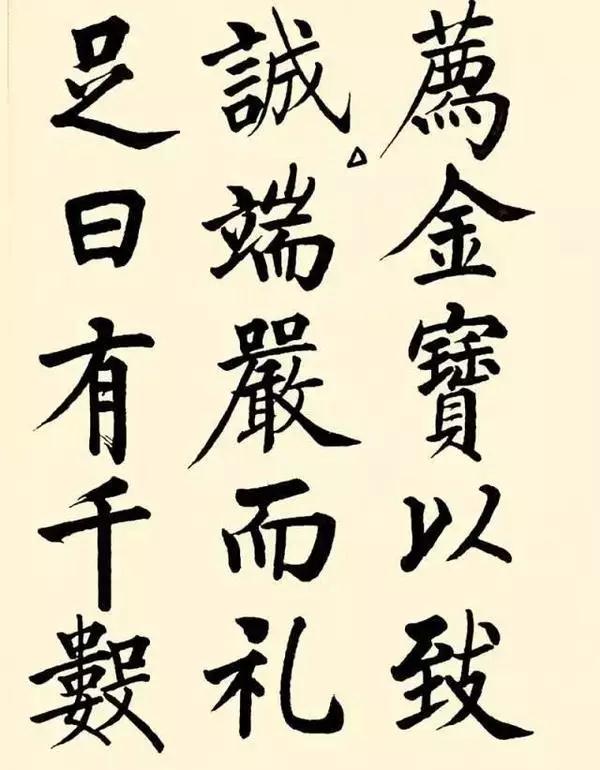 薦金寶以致
誠端嚴而礼
足日有千數